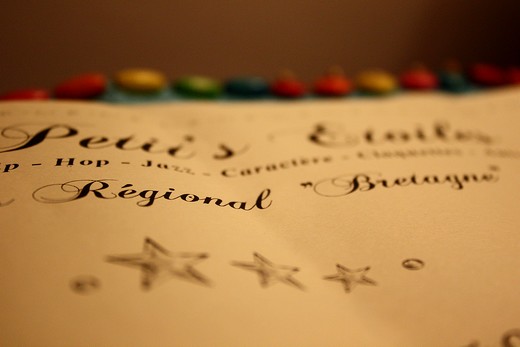 Petit's Etoiles
ip - Hop - Jazz - Caractère - Claquettes -
Régional "Bretagne"